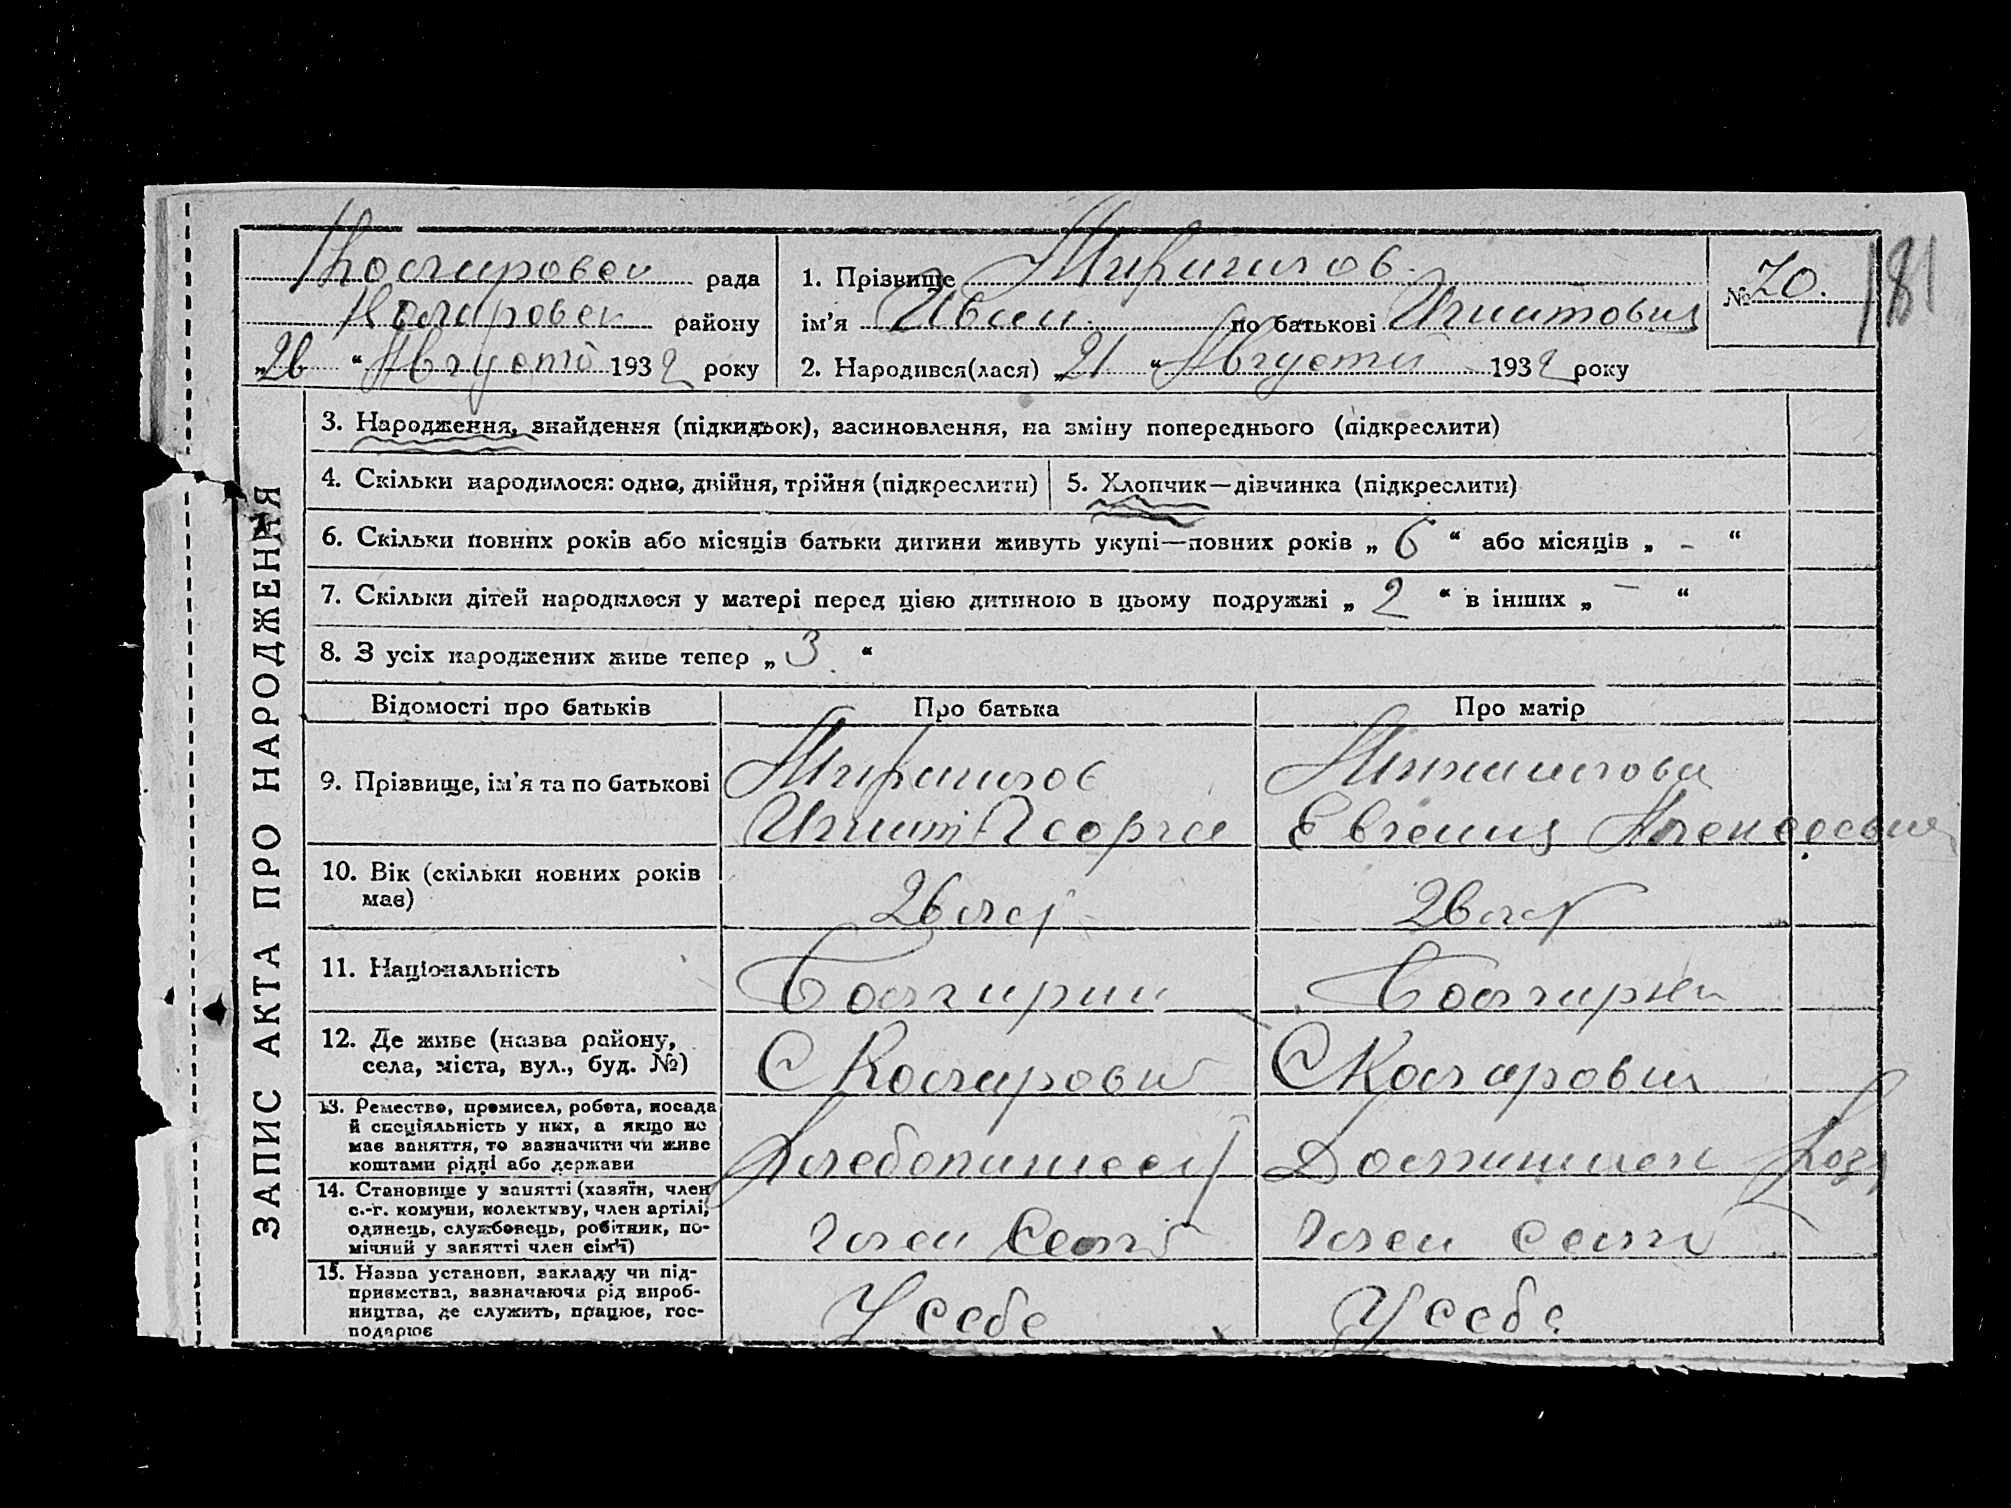 рада
району
„26 “ Августа 1932 року
1. Прізвище
ім'я Иван по батькові Игнатович
2. Народився(лася) „21 “ Августа 1932 року
№ 70.
181
ЗАПИС АКТА ПРО НАРОДЖЕННЯ
3. Народження, знайдення (підкидьок), засиновлення, на зміну попереднього (підкреслити)
4. Скільки народилося: одно, двійня, трійня (підкреслити)
5. Хлопчик—дівчинка (підкреслити)
6. Скільки повних років або місяців батьки дитини живуть укупі—повних років „ 6 “ або місяців „ - “
7. Скільки дітей народилося у матері перед цією дитиною в цьому подружжі „ 2 “ в інших „ — “
8. З усіх народжених живе тепер „ 3 “
Відомості про батьків
Про батька
Про матір
9. Прізвище, ім'я та по батькові
Игнат Георги
Евгения
10. Вік (скільки повних років
має)
26 лет
26 лет
11. Національність
Болгарин
Болгарка
12. Де живе (назва району,
села, міста, вул., буд. №)
С
С
13. Ремество, промисел, робота, посада
й спеціяльність у них, а якщо не
має заняття, то зазначити чи живе
коштами рідні або держави
Хлебопашец
Домашнее хоз
14. Становище у занятті (хазяїн, член
с.-г. комуни, колективу, член артілі,
одинець, службовець, робітник, по-
мічний у занятті член сім'ї)
член
член
15. Назва установи, закладу чи під-
приємства, зазначаючи рід вироб-
ництва, де служить, працює, гос-
подарює
У себе
У себе